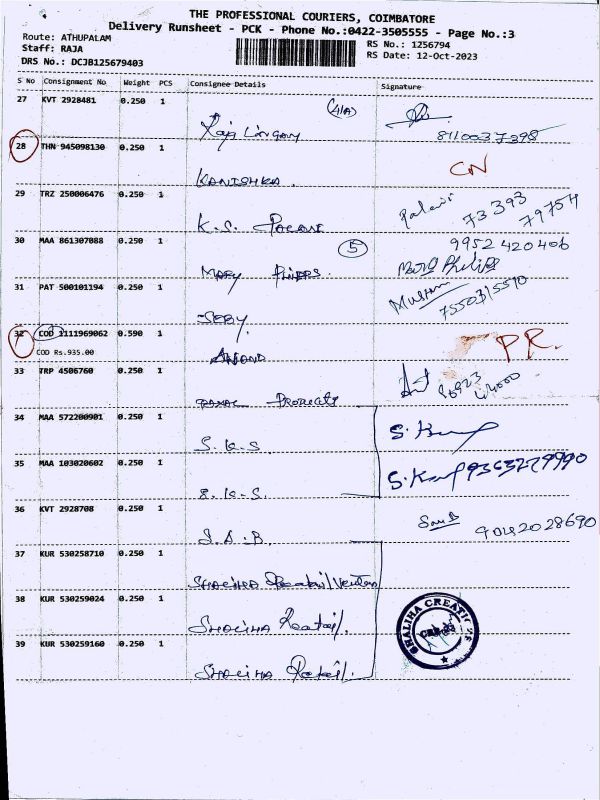 THE PROFESSIONAL COURIERS, COIMBATORE
Delivery Runsheet - PCK - Phone No.:0422-3505555 - Page No.:3
Route: ATHUPALAM
Staff: RAJA
DRS No.: DCJB125679403
RS No.: 1256794
RS Date: 12-Oct-2023
S No Consignment No Weight PCS Consignee Details Signature
27 KVT 2928481 0.250 1 (41A)
Raja Lingam 8110037398
28 THN 945098130 0.250 1 CN
KANISHKA.
29 TRZ 250006476 0.250 1 73393 79754
K.S.
30 MAA 861307088 0.250 1 5 9952420406
MARY Mary Philips
31 PAT 500101194 0.250 1 7550315570
SEBY.
32 COD 1111969062 0.590 1 PR.
COD Rs.935.00
ANAND
33 TRP 4506760 0.250 1
Products
34 MAA 572200901 0.250 1
S.K.S. S.Kumar
35 MAA 103020602 0.250 1 S.Kumar 9363229990
S.K.S.
36 KVT 2928708 0.250 1 9042028690
S.A.B.
37 KUR 530258710 0.250 1
SHALIHA
38 KUR 530259024 0.250 1
SHALIHA Reatail.
39 KUR 530259160 0.250 1 SHALIHA CREATIONS
SHALIHA Retail.